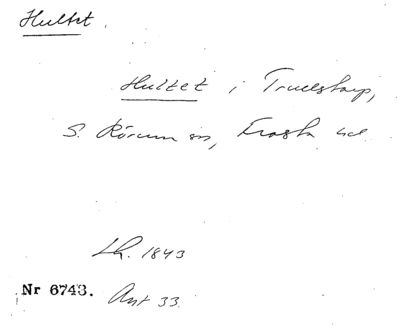 Hultet.
Hultet i Truelstorp,
S. Rörum sn, Frosta hd
Lh. 1843
Nr 6743. Ant 33.